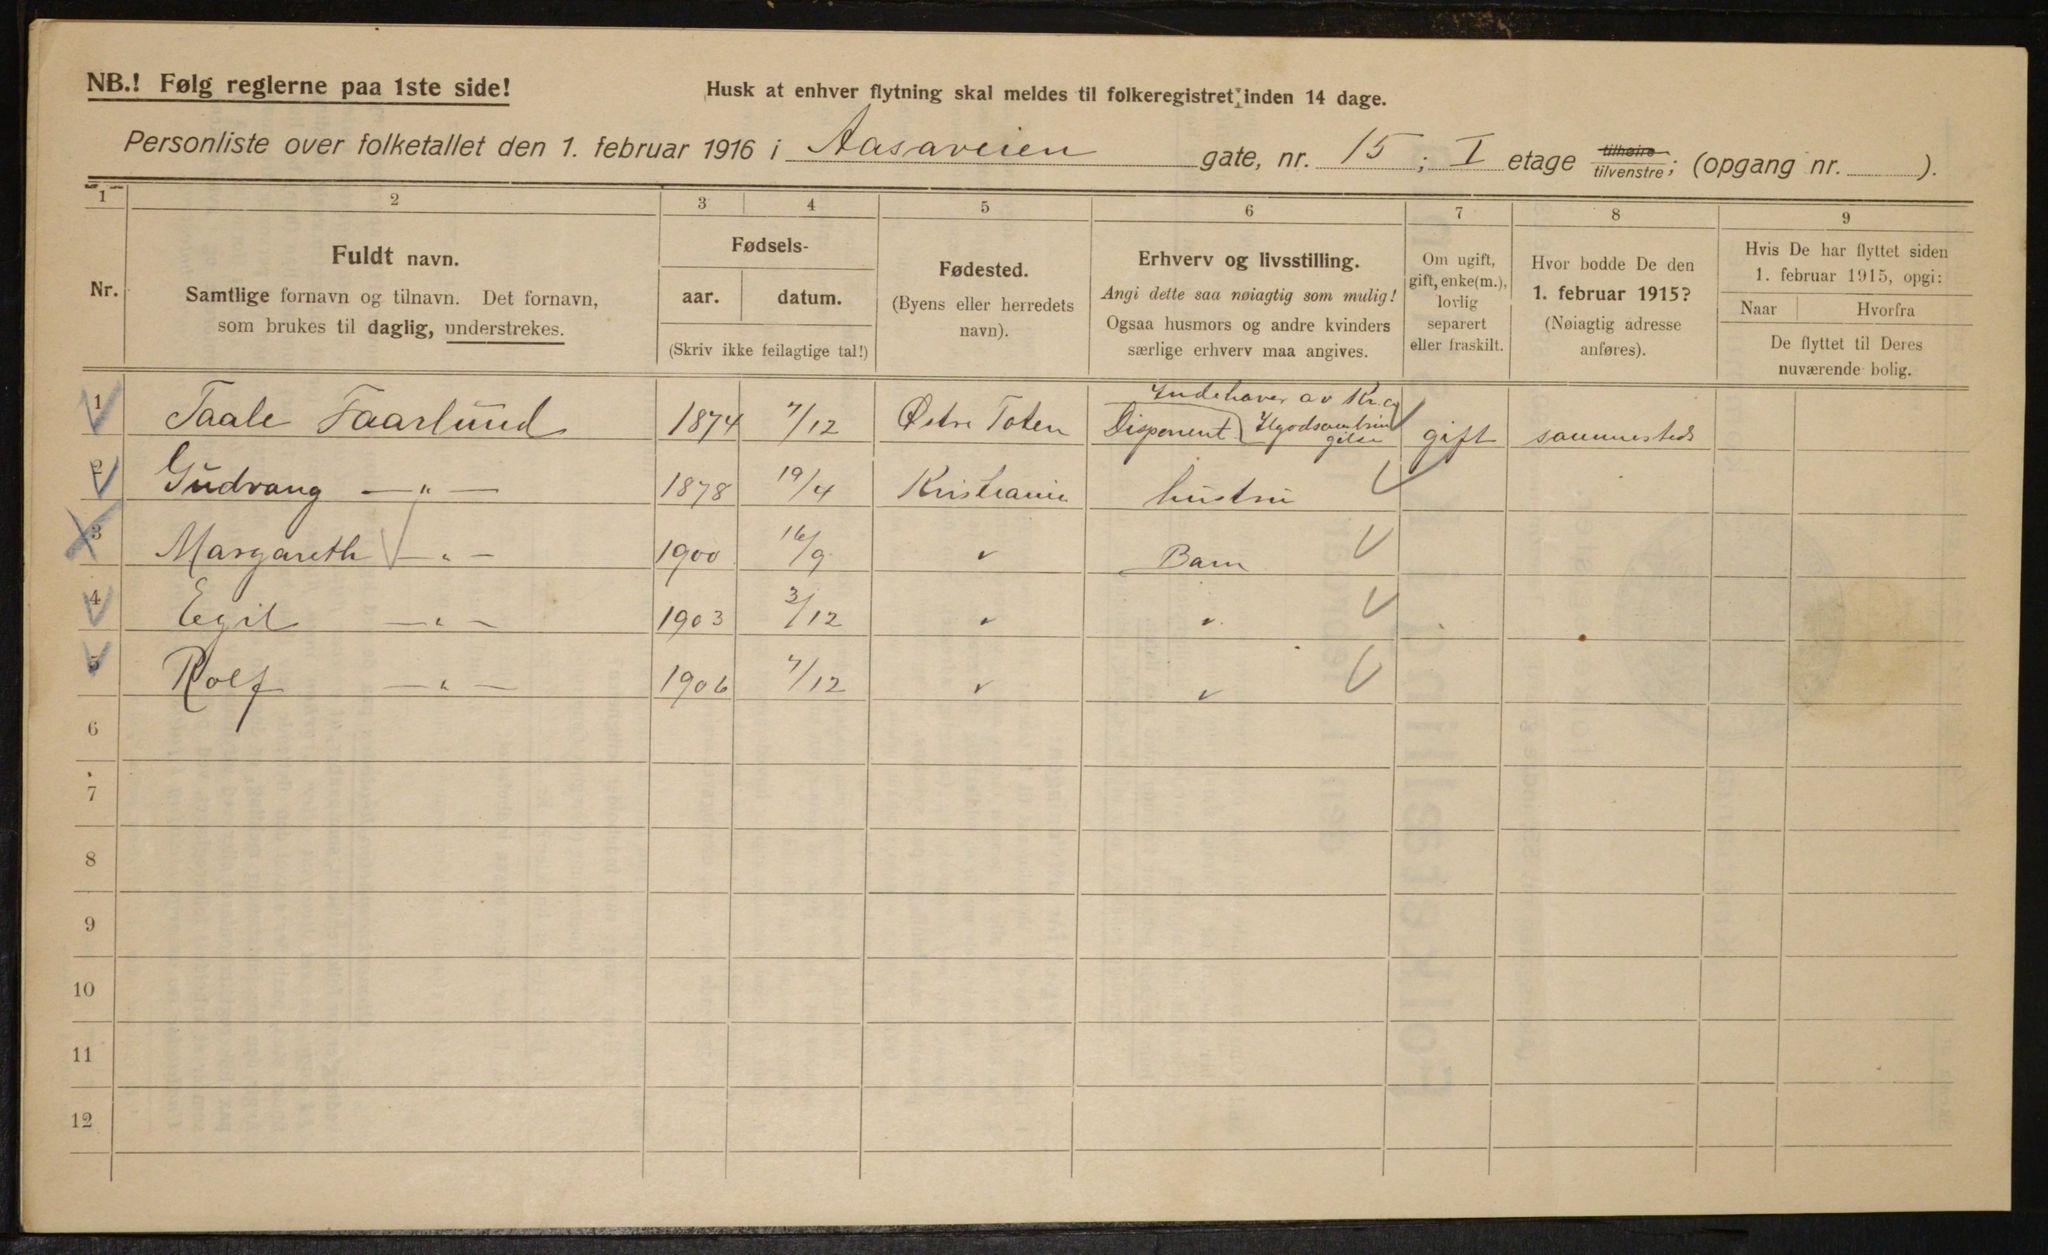 NB.! Følg reglerne paa 1ste side!
Husk at enhver flytning skal meldes til folkeregistret inden 14 dage.
Personliste over folketallet den 1. februar 1916 i Aasaveien gate, nr. 15; I etage tilhøire/tilvenstre; (opgang nr. ).
1 2 3 4 5 6 7 8 9
Nr.
Fuldt navn.
Samtlige fornavn og tilnavn. Det fornavn,
som brukes til daglig, understrekes.
Fødsels-
aar. datum.
(Skriv ikke feilagtige tal!)
Fødested.
(Byens eller herredets
navn).
Erhverv og livsstilling.
Angi dette saa nøiagtig som mulig!
Ogsaa husmors og andre kvinders
særlige erhverv maa angives.
Om ugift,
gift, enke(m.),
lovlig
separert
eller fraskilt.
Hvor bodde De den
1. februar 1915?
(Nøiagtig adresse
anføres).
Hvis De har flyttet siden
1. februar 1915, opgi:
Naar Hvorfra
De flyttet til Deres
nuværende bolig.
Indehaver av Kr.a
1 Taale Faarlund 1874 7/12 Østre Toten Disponent Ilgodsombrin
gelse gift sammesteds
2 Gudvang —"— 1878 19/4 Kristiania hustru
3 Margareth —"— 1900 16/9 " Barn
4 Egil —"— 1903 3/12 " "
5 Rolf —"— 1906 7/12 " "
6
7
8
9
10
11
12